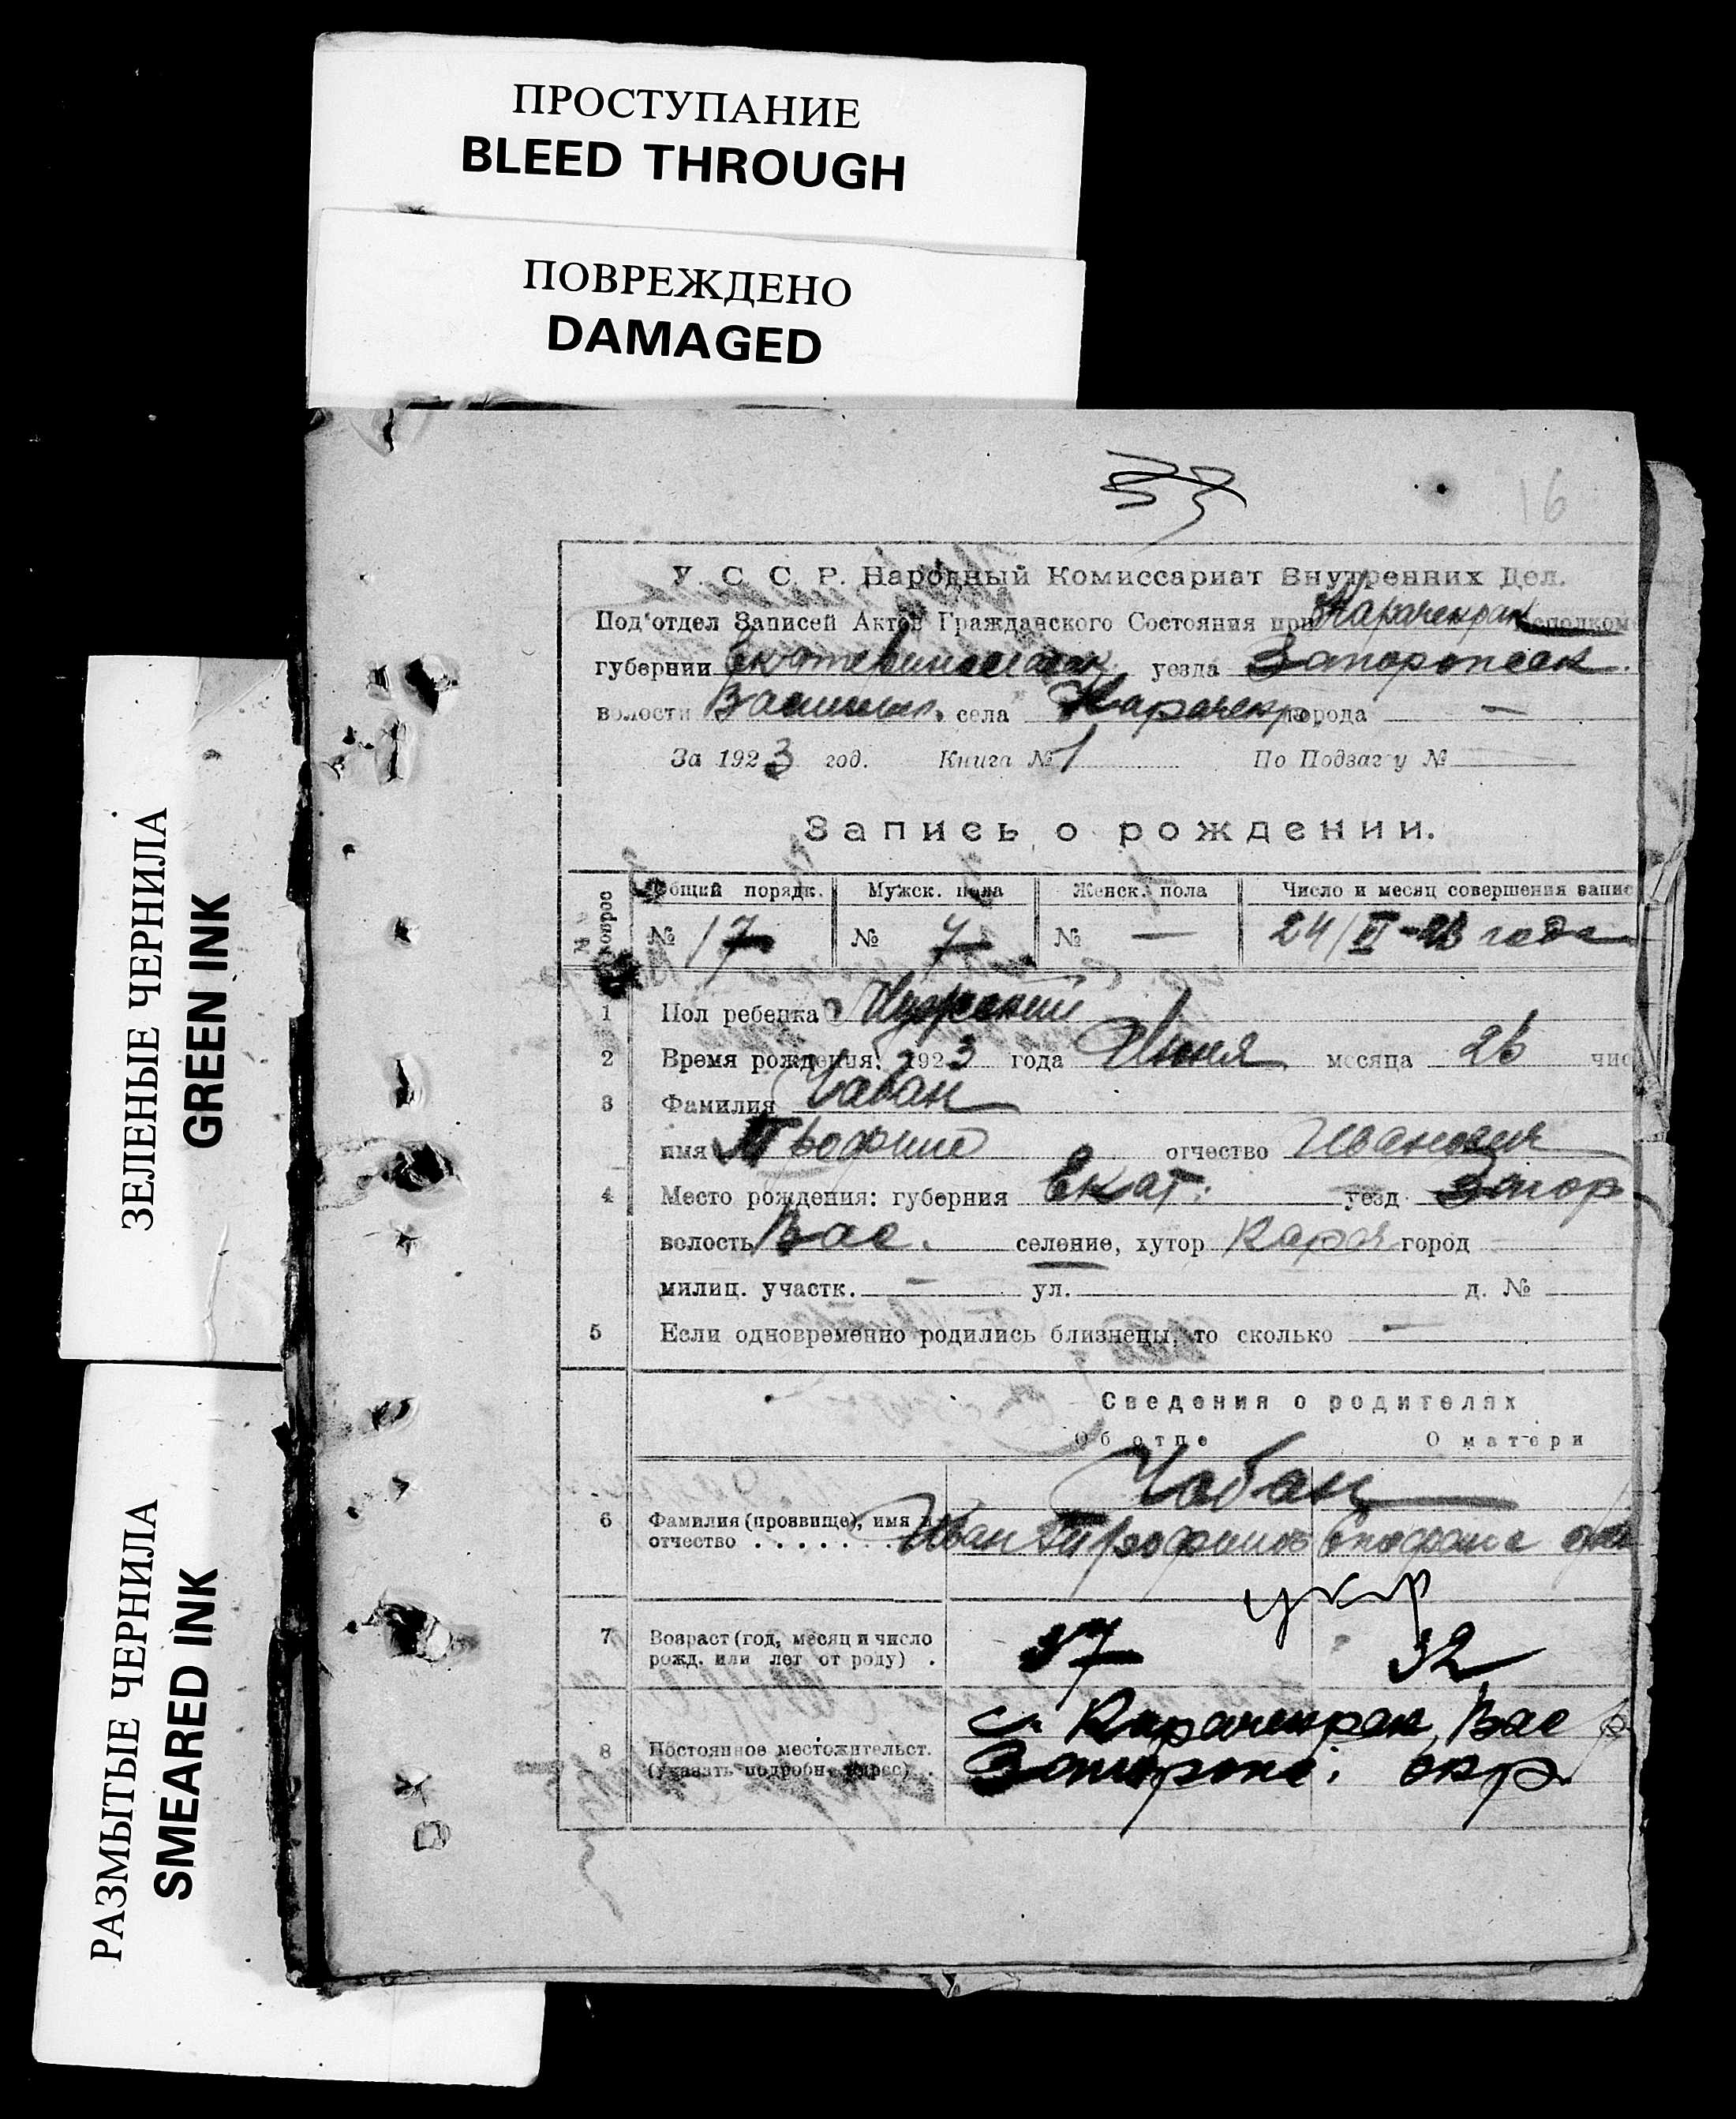 ПРОСТУПАНИЕ
BLEED THROUGH
ПОВРЕЖДЕНО
DAMAGED
ЗЕЛЕНЫЕ ЧЕРНИЛА
GREEN INK
РАЗМЫТЫЕ ЧЕРНИЛА
SMEARED INK
16
У. С. С. Р. Народный Комиссариат Внутренних Дел.
Под'отдел Записей Актов Гражданского Состояния при Карачекрак исполком
губернии уезда
волости села Карачекр города —
За 1923 год. Книга № 1 По Подзагу №
Запись о рождении.
Общий порядк. Мужск. пола Женск. пола Число и месяц совершения запис
№ 17 № 7 № — 24/VI-23 года
1 Пол ребенка Мужский
2 Время рождения: 1923 года Июня месяца чис
3 Фамилия Чабан
имя отчество Иванович
4 Место рождения: губерния Екат. уезд Запор
волость Вас. селение, хутор Карач город
милиц. участк. — ул. д. №
5 Если одновременно родились близнецы, то сколько —
Сведения о родителях
Об отце О матери
Чабан
6 Фамилия (прозвище), имя и
отчество . . . . . . . Иван
укр
7 Возраст (год, месяц и число
рожд. или лет от роду) . 37 32
с. Карачекрак, Вас р
8 Постоянное местожительст.
(указать подробн. адрес) . окр.